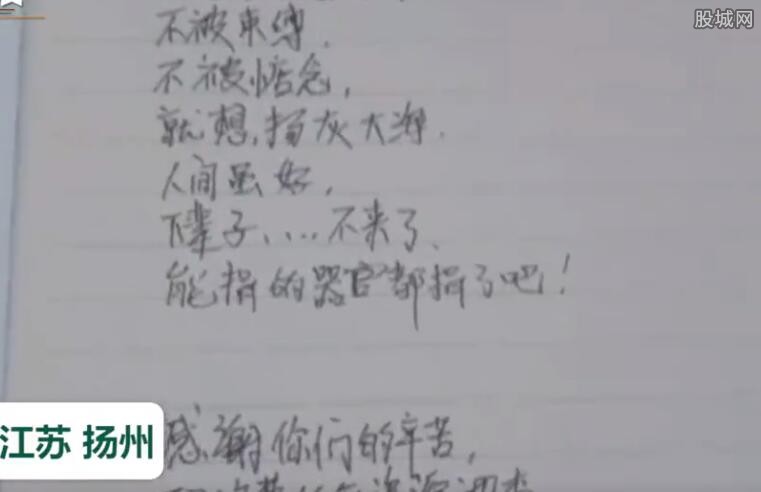 股城网
不被束缚.
不被惦念,
就想,扬灰大海.
人间虽好,
下辈子....不来了、
能捐的器官都捐了吧!
江苏 扬州
感谢你们的辛苦,